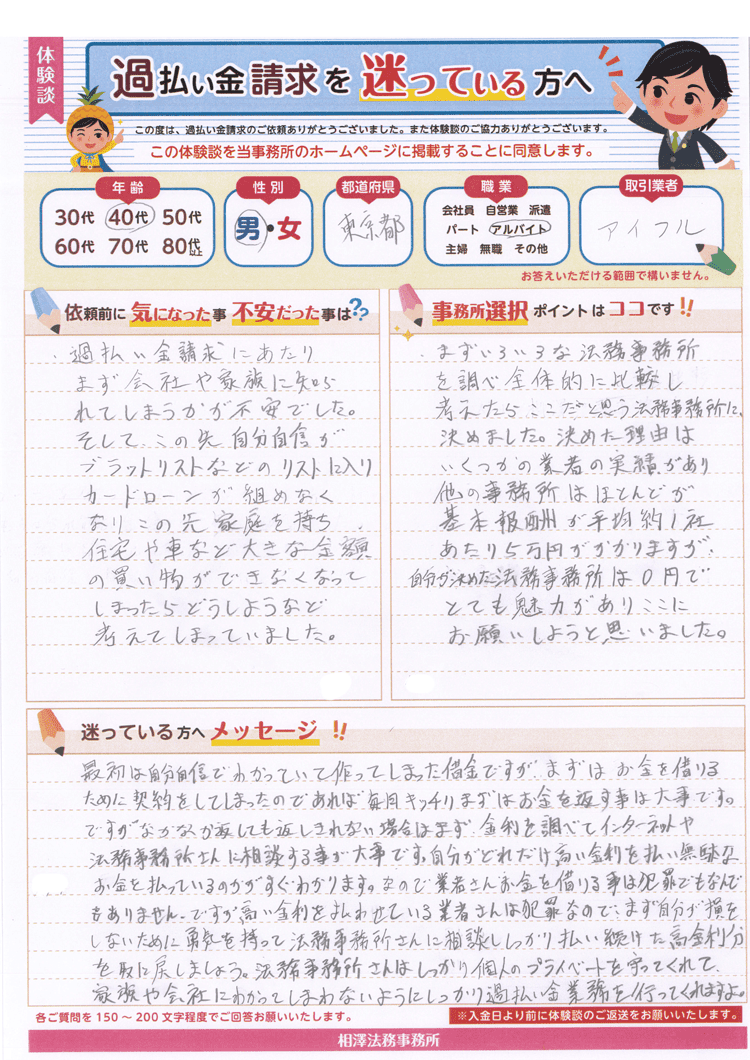 体験談
過払い金請求を迷っている方へ
この度は、過払い金請求のご依頼ありがとうございました。また体験談のご協力ありがとうございます。
この体験談を当事務所のホームページに掲載することに同意します。
年齢
30代 40代 50代
60代 70代 80代以上
性別
男・女
都道府県
東京都
職業
会社員 自営業 派遣
パート アルバイト
主婦 無職 その他
取引業者
アイフル
お答えいただける範囲で構いません。
依頼前に気になった事 不安だった事は??
・過払い金請求にあたり
まず会社や家族に知ら
れてしまうかが不安でした。
そして、この先自分自信が
ブラットリストなどのリストに入り
カードローンが組めなく
なり、この先家庭を持ち、
住宅や車など大きな金額
の買い物ができなくなって
しまったらどうしようなど
考えてしまっていました。
事務所選択ポイントはココです!!
・まずいろいろな法務事務所
を調べ全体的に比較し
考えたらここだと思う法務事務所に、
決めました。決めた理由は
いくつかの業者の実績があり
他の事務所はほとんどが
基本報酬が平均約1社
あたり5万円がかかりますが、
自分が決めた法務事務所は0円で
とても魅力がありここに
お願いしようと思いました。
迷っている方へメッセージ!!
最初は自分自信でわかっていて作ってしまった借金ですが、まずはお金を借りる
ために契約をしてしまったのであれば毎月キッチリまずはお金を返す事は大事です。
ですがなかなか返しても返しきれない場合はまず、金利を調べてインターネットや
法務事務所さんに相談する事が大事です。自分がどれだけ高い金利を払い無駄な
お金を払っているのかがすぐわかります。なので業者さんお金を借りる事は犯罪でもなんで
もありません。ですが高い金利を払わせている業者さんは犯罪なので、まず自分が損を
しないために勇気を持って法務事務所さんに相談ししっかり払い続けた高金利分
を取に戻しましょう。法務事務所さんはしっかり個人のプライベートを守ってくれて、
家族や会社にわかってしまわないようにしっかり過払い金業務を行ってくれますよ。
各ご質問を150～200文字程度でご回答お願いいたします。
※入金日より前に体験談のご返送をお願いいたします。
相澤法務事務所